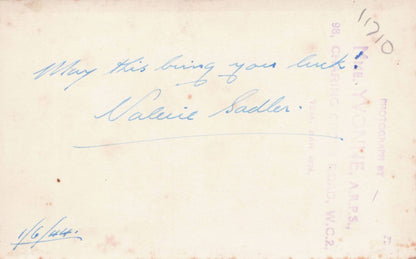 1710
May this bring you luck!
Valerie Sadler.
1/6/44.
PHOTOGRAPH BY
MME. YVONNE, A.R.P.S.,
98, CHARING ROAD, W.C.2.